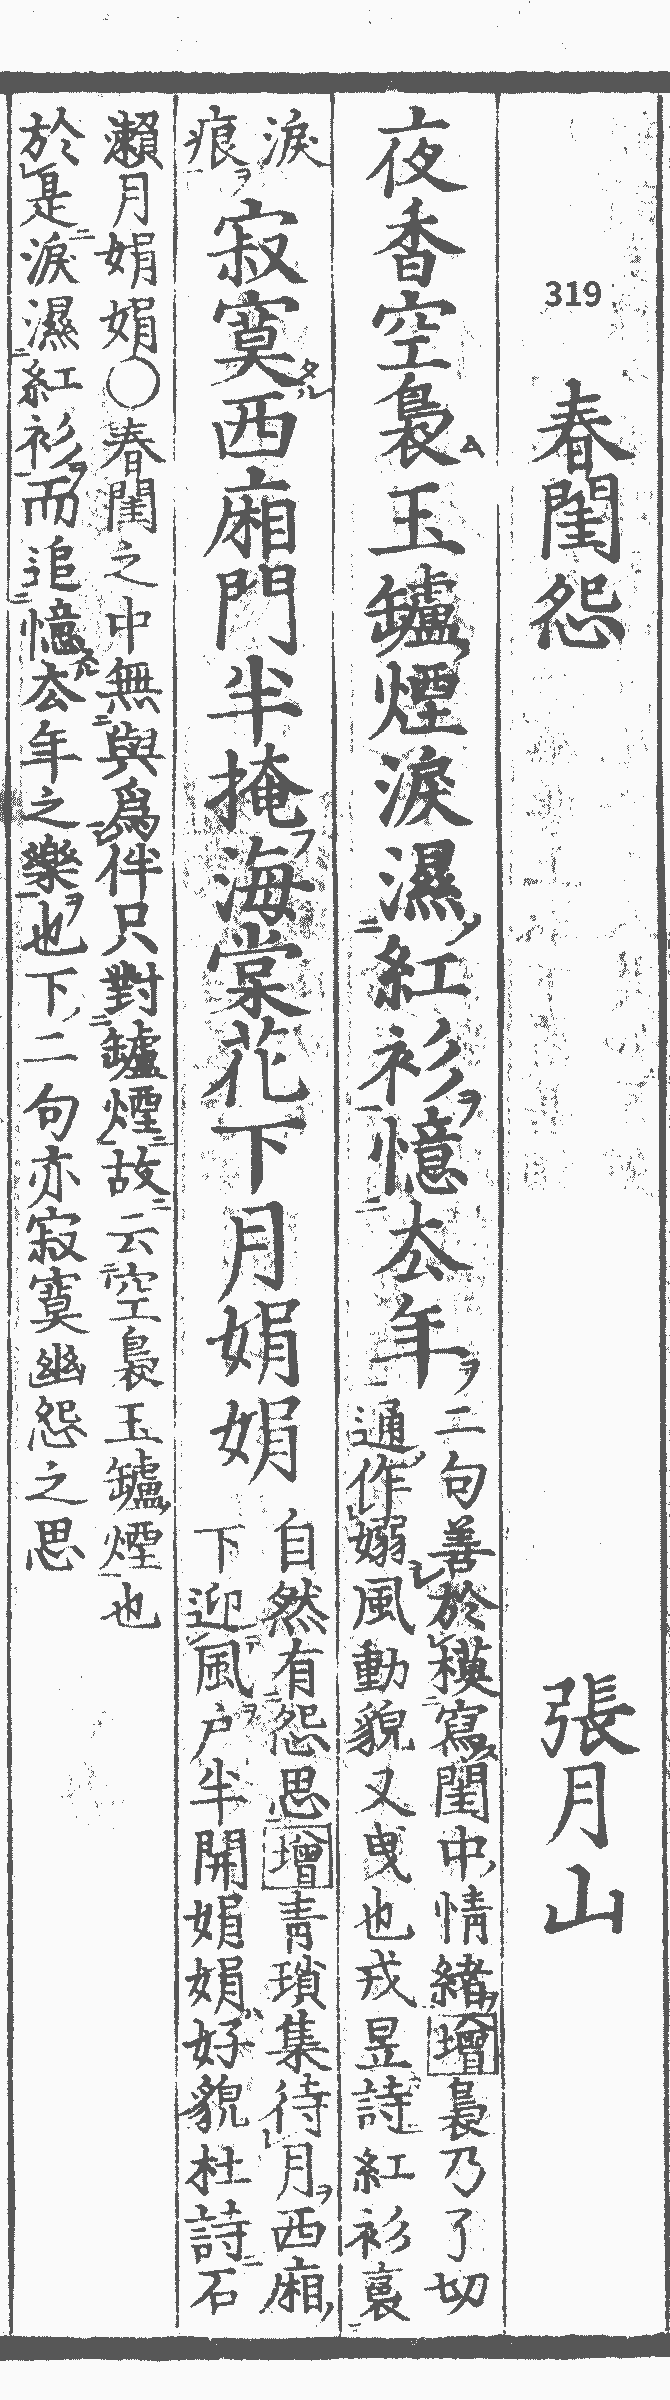 319
春閨怨　張月山
夜香空裊玉鑪煙淚濕紅衫憶去年
二句善於模寫閨中情緒增裊乃了切
通作嫋風動貌又曳也戎昱詩紅衫裏
淚
痕
寂寞西廂門半掩海棠花下月娟娟
自然有怨思增靑瑣集待月西廂
下迎風户半開娟娟好貌杜詩石
瀨月娟娟〇春閨之中無與爲伴只對鑪煙故云空裊玉鑪煙也
於是淚濕紅衫而追憶去年之樂也下二句亦寂寞幽怨之思